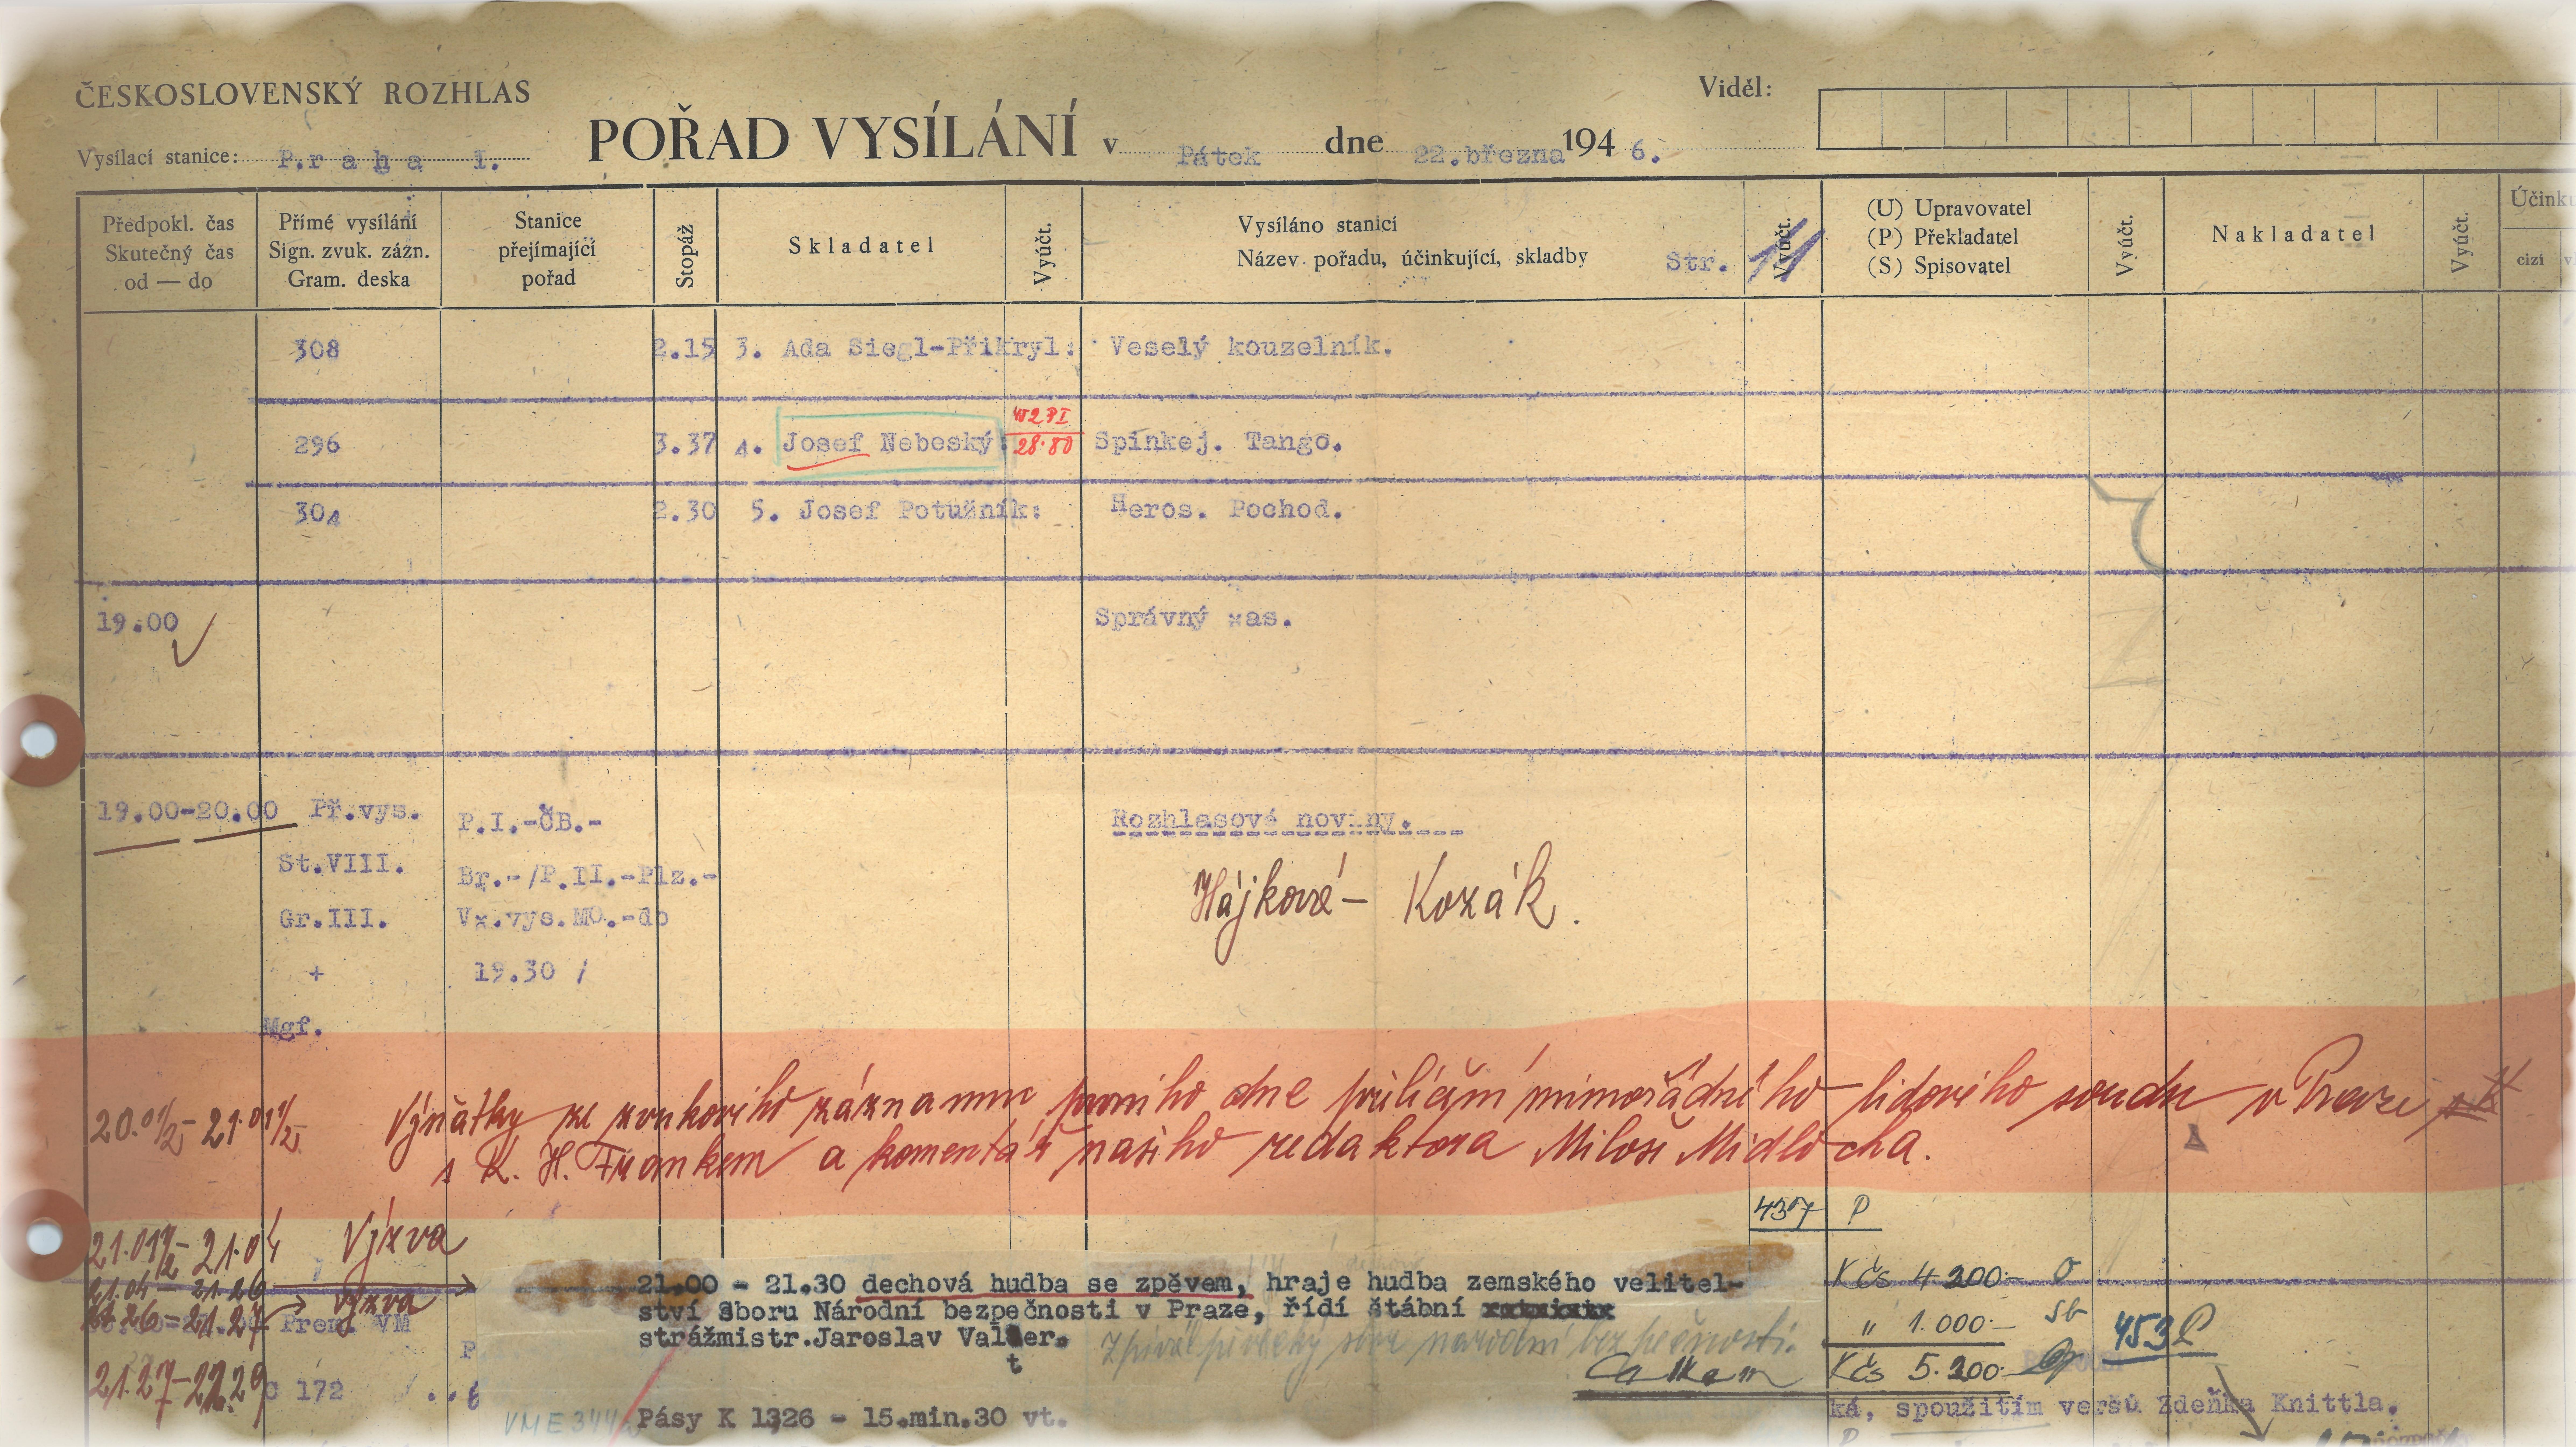 ČESKOSLOVENSKÝ ROZHLAS
Viděl:
Vysílací stanice: P.r a h a I.
POŘAD VYSÍLÁNÍ v Pátek dne 22.března 194 6.
Předpokl. čas
Skutečný čas
od — do
Přímé vysílání
Sign. zvuk. zázn.
Gram. deska
Stanice
přejímající
pořad
Stopáž
Skladatel
Vyúčt.
Vysíláno stanicí
Název pořadu, účinkující, skladby
Str. 11
Vyúčt.
(U) Upravovatel
(P) Překladatel
(S) Spisovatel
Vyúčt.
Nakladatel
Vyúčt.
Účinku
cizí v
308 2.15 3. Ada Siegl-Přikryl: Veselý kouzelník.
452 PI
296 3.37 4. Josef Nebeský: 28·80 Spinkej. Tango.
304 2.30 5. Josef Potužník: Heros. Pochod.
19.00 Správný xas.
19.00-20.00 Př.vys. P.I.-ČB.- Rozhlasové noviny.
St.VIII. Br.-/P.II.-Plz.-
Hájková – Kozák.
Gr.III. Vx.vys.MO.-do
+ 19.30 /
Mgf.
20.01½ – 21.01½ Výňatky ze zvukového záznamu prvního dne přelíčení mimořádného lidového soudu v Praze
s K. H. Frankem a komentář našeho redaktora Miloše Midlocha.
4307 P
21.01½ – 21.04 Výzva
21.04 – 21.26
21.26 – 21.27 Výzva
Prem. VM
21.27 – 22.29 172
21.00 - 21.30 dechová hudba se zpěvem, hraje hudba zemského velitel-
ství Sboru Národní bezpečnosti v Praze, řídí štábní
strážmistr.Jaroslav Valter.
t
Zpívá pěvecký sbor národní bezpečnosti.
Kčs 4200·–
" 1.000·– sb
Kčs 5.200·–
453 P
VME 344
Pásy K 1326 - 15.min.30 vt.
ká, spoužitím veršů Zdeňka Knittla.
P